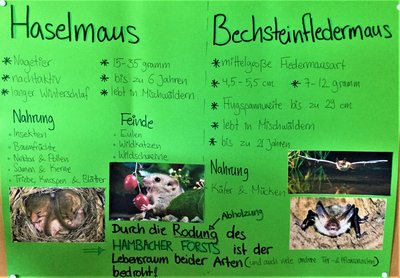 Haselmaus
* Nagetier
* nachtaktiv
* langer Winterschlaf
* 15-35 gramm
* bis zu 6 Jahren
* lebt in Mischwäldern
Nahrung
• Insekten
• Baumfrüchte
• Nektar & Pollen
• Samen & Kerne
• Triebe, Knospen & Blätter
Feinde
• Eulen
• Wildkatzen
• Wildschweine
Bechsteinfledermaus
* mittelgroße Fledermausart
* 4,5-5,5 cm
* 7-12 gramm
* Flugspannweite bis zu 29 cm
* lebt in Mischwäldern
* bis zu 21 Jahren
Nahrung
Käfer & Mücken
Abholzung
Durch die Rodung des
HAMBACHER FORSTS ist der
Lebensraum beider Arten (und auch viele andere Tier- & Pflanzenarten)
bedroht!